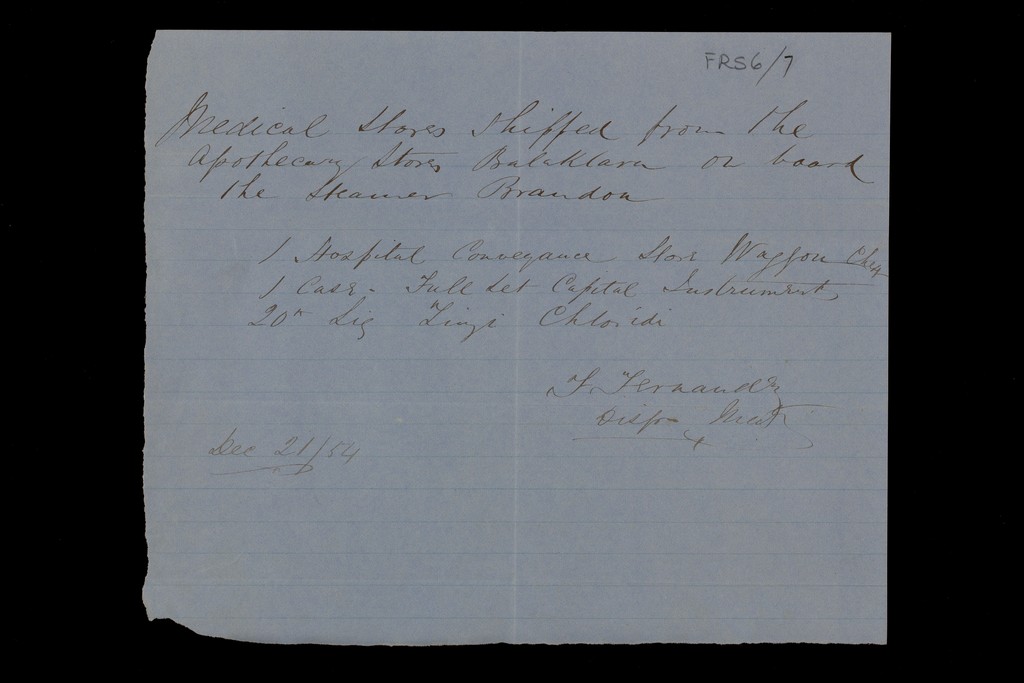 FRS6/7
Medical Stores Shipped from the
Apothecary Stores Balaklava on board
the Steamer Brandon
1 Hospital Conveyance Store Waggon
1 Case - Full Set Capital Instruments
20 Liq Zinzi Chloridi
F. Fernandez
Dispr
Dec 21/54